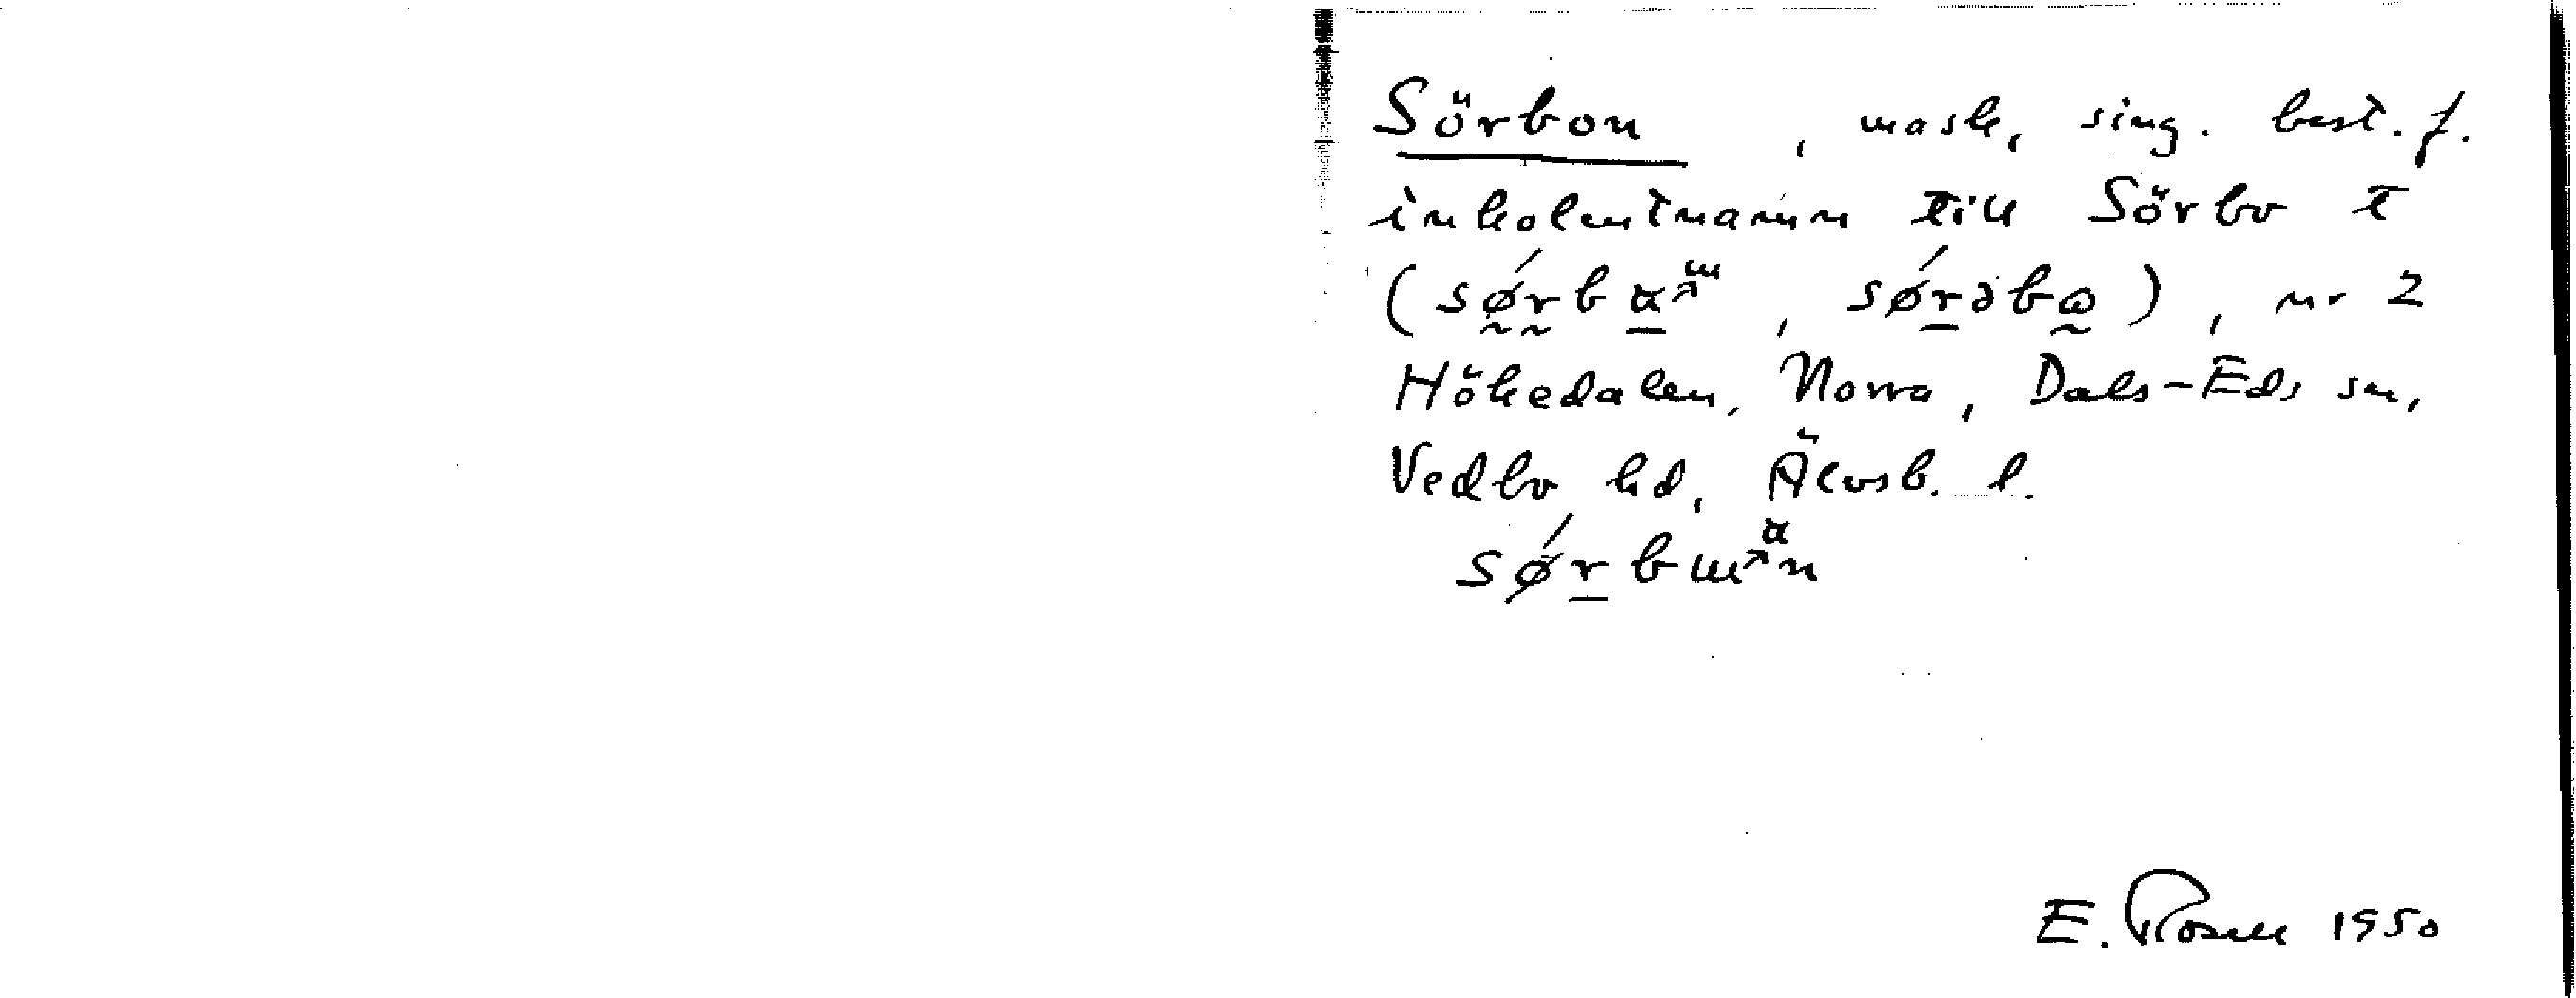 Sörbon, mask, sing. best. f.
inkolentnamn till Sörbo t
(sǿrbɑɯ, sǿrəbɷ), nr 2
Hökedalen, Norra, Dals-Eds sn,
Vedbo hd, Älvsb. l.
sǿrbɯɑn
E. Rosell 1950